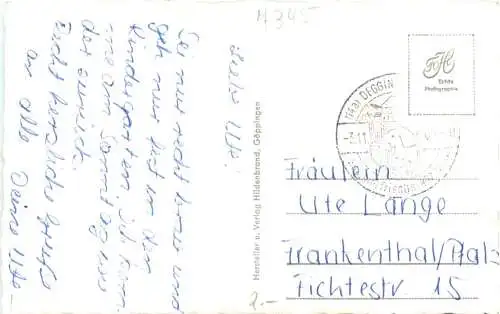 H 345
Liebe Ute!
Sei nur recht brav und
geh nur fest in den
Kindergarten. Ich kom
me am Sonntag wie
der zurück.
Recht herzliche Grüße
an alle
Deine Ute
Hersteller u. Verlag Hildenbrand, Göppingen
Echte
Photographie
(14a) DEGGIN
Fräulein
Ute Lange
Frankenthal/Pfalz
Fichtestr 15
2.-